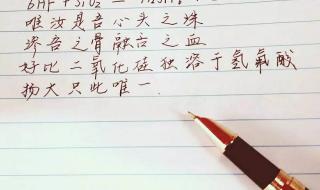 6HF + SiO₂ =
唯汝是吾心头之殊
渗吾之骨融吾之血
好比二氧化硅独溶于氢氟酸
扬大只此唯一.